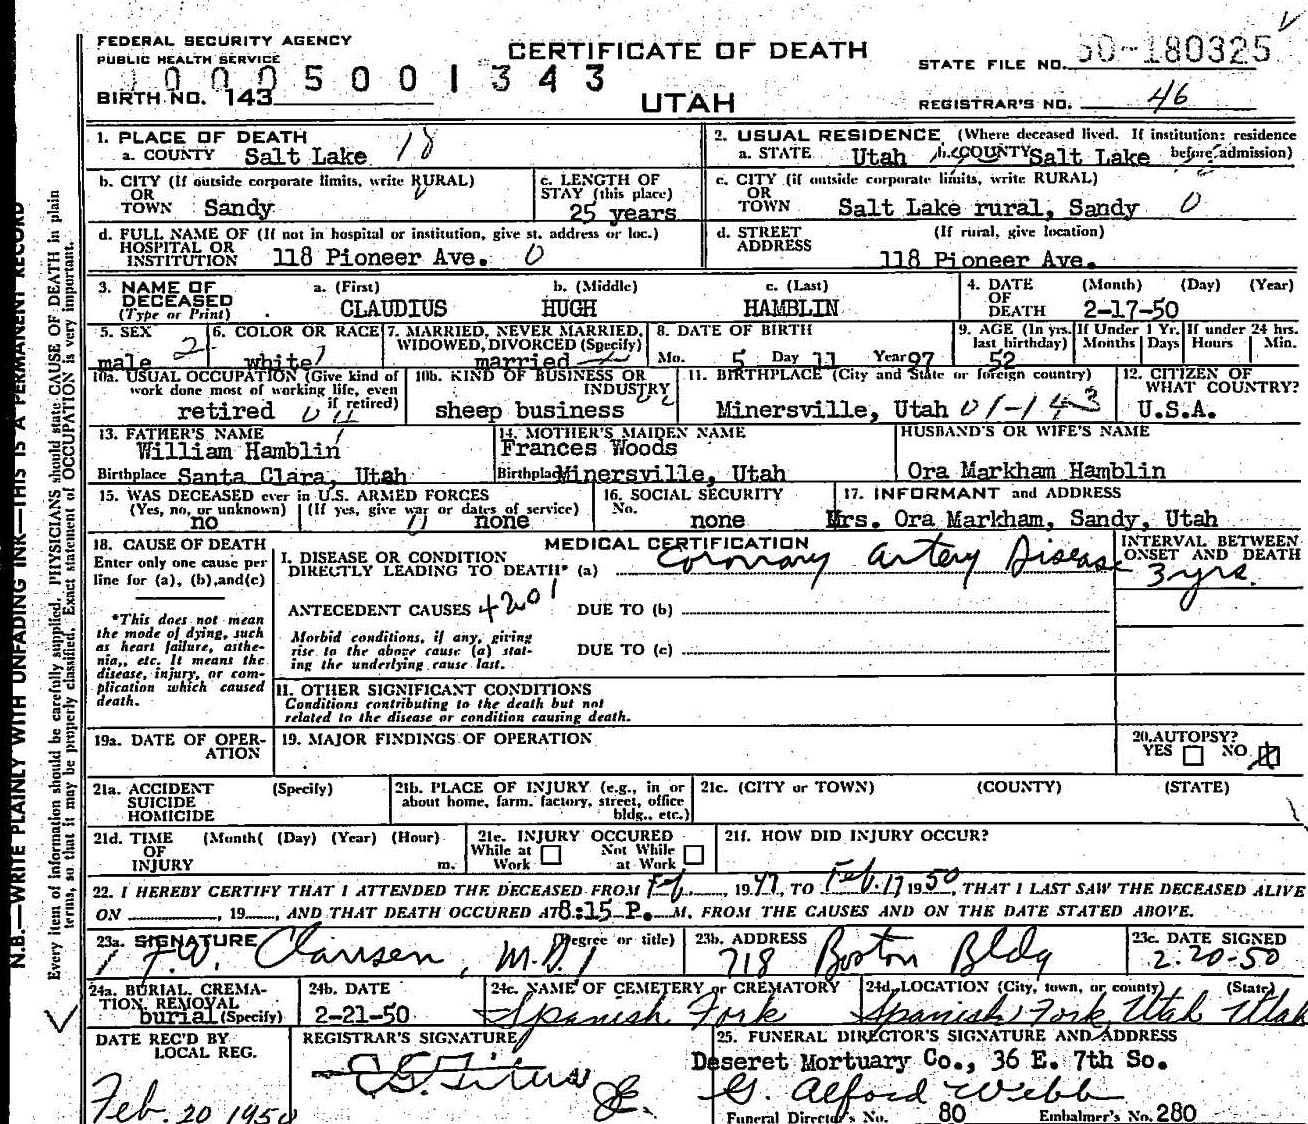 FEDERAL SECURITY AGENCY
PUBLIC HEALTH SERVICE
CERTIFICATE OF DEATH
STATE FILE NO. 50-180325
0005001343
BIRTH NO. 143
UTAH
REGISTRAR'S NO. 46
1. PLACE OF DEATH
a. COUNTY Salt Lake 18
2. USUAL RESIDENCE (Where deceased lived. If institution: residence before admission)
a. STATE Utah b. COUNTY Salt Lake
b. CITY (If outside corporate limits, write RURAL)
OR
TOWN Sandy
c. LENGTH OF
STAY (this place)
25 years
c. CITY (if outside corporate limits, write RURAL)
OR
TOWN Salt Lake rural, Sandy 0
d. FULL NAME OF (If not in hospital or institution, give st. address or loc.)
HOSPITAL OR
INSTITUTION 118 Pioneer Ave. 0
d. STREET (If rural, give location)
ADDRESS
118 Pioneer Ave.
3. NAME OF DECEASED
(Type or Print)
a. (First) b. (Middle) c. (Last)
CLAUDIUS HUGH HAMBLIN
4. DATE OF DEATH (Month) (Day) (Year)
2-17-50
5. SEX
male 2
6. COLOR OR RACE
white
7. MARRIED, NEVER MARRIED,
WIDOWED, DIVORCED (Specify)
married
8. DATE OF BIRTH
Mo. 5 Day 11 Year 97
9. AGE (In yrs. last birthday)
52
If Under 1 Yr.
Months Days
If under 24 hrs.
Hours Min.
10a. USUAL OCCUPATION (Give kind of
work done most of working life, even
if retired)
retired
10b. KIND OF BUSINESS OR
INDUSTRY
sheep business
11. BIRTHPLACE (City and State or foreign country)
Minersville, Utah 01-143
12. CITIZEN OF
WHAT COUNTRY?
U.S.A.
13. FATHER'S NAME
William Hamblin
Birthplace Santa Clara, Utah
14. MOTHER'S MAIDEN NAME
Frances Woods
Birthplace Minersville, Utah
HUSBAND'S OR WIFE'S NAME
Ora Markham Hamblin
15. WAS DECEASED ever in U.S. ARMED FORCES
(Yes, no, or unknown) (If yes, give war or dates of service)
no none
16. SOCIAL SECURITY
No.
none
17. INFORMANT and ADDRESS
Mrs. Ora Markham, Sandy, Utah
18. CAUSE OF DEATH
Enter only one cause per
line for (a), (b), and (c)
*This does not mean
the mode of dying, such
as heart failure, asthe-
nia,, etc. It means the
disease, injury, or com-
plication which caused
death.
MEDICAL CERTIFICATION
I. DISEASE OR CONDITION
DIRECTLY LEADING TO DEATH* (a) Coronary Artery Disease
INTERVAL BETWEEN
ONSET AND DEATH
3 yrs.
ANTECEDENT CAUSES 4201 DUE TO (b)
Morbid conditions, if any, giving
rise to the above cause (a) stat-
ing the underlying cause last.
DUE TO (c)
II. OTHER SIGNIFICANT CONDITIONS
Conditions contributing to the death but not
related to the disease or condition causing death.
19a. DATE OF OPER-
ATION
19. MAJOR FINDINGS OF OPERATION
20. AUTOPSY?
YES NO
21a. ACCIDENT (Specify)
SUICIDE
HOMICIDE
21b. PLACE OF INJURY (e.g., in or
about home, farm. factory, street, office
bldg., etc.)
21c. (CITY or TOWN) (COUNTY) (STATE)
21d. TIME (Month( (Day) (Year) (Hour)
OF
INJURY m.
21e. INJURY OCCURED
While at Work Not While at Work
21f. HOW DID INJURY OCCUR?
22. I HEREBY CERTIFY THAT I ATTENDED THE DECEASED FROM Feb., 1947, TO Feb. 17 1950, THAT I LAST SAW THE DECEASED ALIVE
ON , 19 , AND THAT DEATH OCCURED AT 8:15 P. M. FROM THE CAUSES AND ON THE DATE STATED ABOVE.
23a. SIGNATURE (Degree or title)
F.W. Clausen, M.D.
23b. ADDRESS
718 Boston Bldg
23c. DATE SIGNED
2-20-50
24a. BURIAL, CREMA-
TION, REMOVAL
burial (Specify)
24b. DATE
2-21-50
24c. NAME OF CEMETERY or CREMATORY
Spanish Fork
24d. LOCATION (City, town, or county) (State)
Spanish Fork, Utah Utah
DATE REC'D BY
LOCAL REG.
Feb. 20 1950
REGISTRAR'S SIGNATURE
25. FUNERAL DIRECTOR'S SIGNATURE AND ADDRESS
Deseret Mortuary Co., 36 E. 7th So.
G. Alford Webb
Funeral Director's No. 80 Embalmer's No. 280
N.B.—WRITE PLAINLY WITH UNFADING INK—THIS IS A PERMANENT RECORD
Every item of information should be carefully supplied. PHYSICIANS should state CAUSE OF DEATH in plain
terms, so that it may be properly classified. Exact statement of OCCUPATION is very important.